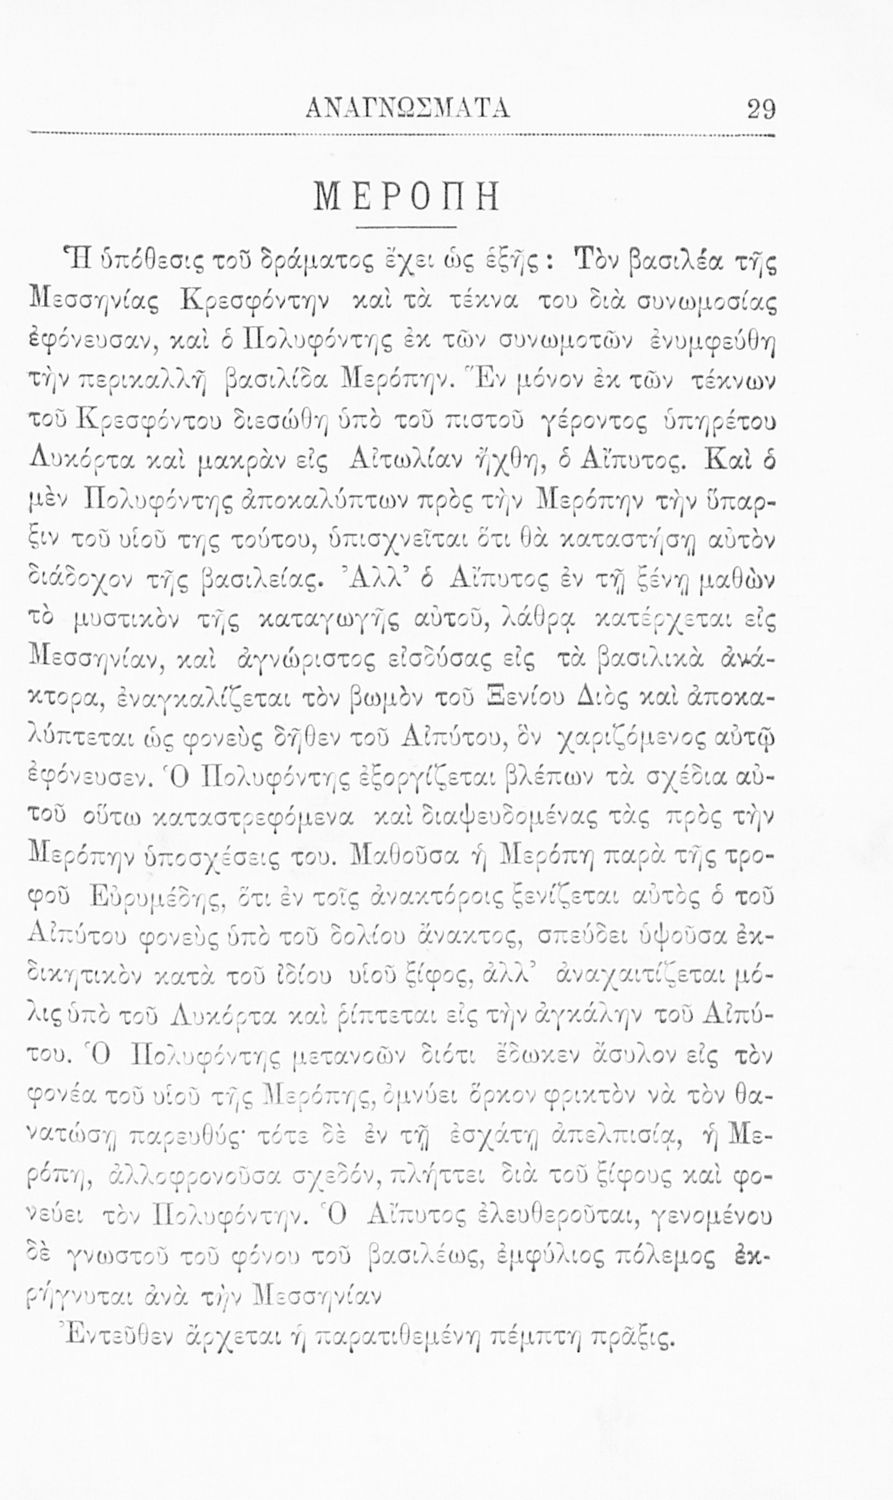 ΑΝΑΓΝΩΣΜΑΤΑ 29
ΜΕΡΟΠΗ
Ἡ ὑπόθεσις τοῦ δράματος ἔχει ὡς ἑξῆς : Τὸν βασιλέα τῆς
Μεσσηνίας Κρεσφόντην καὶ τὰ τέκνα του διὰ συνωμοσίας
ἐφόνευσαν, καὶ ὁ Πολυφόντης ἐκ τῶν συνωμοτῶν ἐνυμφεύθη
τὴν περικαλλῆ βασιλίδα Μερόπην. Ἓν μόνον ἐκ τῶν τέκνων
τοῦ Κρεσφόντου διεσώθη ὑπὸ τοῦ πιστοῦ γέροντος ὑπηρέτου
Λυκόρτα καὶ μακρὰν εἰς Αἰτωλίαν ἤχθη, ὁ Αἴπυτος. Καὶ ὁ
μὲν Πολυφόντης ἀποκαλύπτων πρὸς τὴν Μερόπην τὴν ὕπαρ-
ξιν τοῦ υἱοῦ της τούτου, ὑπισχνεῖται ὅτι θὰ καταστήσῃ αὐτὸν
διάδοχον τῆς βασιλείας. Ἀλλ’ ὁ Αἴπυτος ἐν τῇ ξένῃ μαθὼν
τὸ μυστικὸν τῆς καταγωγῆς αὐτοῦ, λάθρᾳ κατέρχεται εἰς
Μεσσηνίαν, καὶ ἀγνώριστος εἰσδύσας εἰς τὰ βασιλικὰ ἀνά-
κτορα, ἐναγκαλίζεται τὸν βωμὸν τοῦ Ξενίου Διὸς καὶ ἀποκα-
λύπτεται ὡς φονεὺς δῆθεν τοῦ Αἰπύτου, ὃν χαριζόμενος αὐτῷ
ἐφόνευσεν. Ὁ Πολυφόντης ἐξοργίζεται βλέπων τὰ σχέδια αὐ-
τοῦ οὕτω καταστρεφόμενα καὶ διαψευδομένας τὰς πρὸς τὴν
Μερόπην ὑποσχέσεις του. Μαθοῦσα ἡ Μερόπη παρὰ τῆς τρο-
φοῦ Εὐρυμέδης, ὅτι ἐν τοῖς ἀνακτόροις ξενίζεται αὐτὸς ὁ τοῦ
Αἰπύτου φονεὺς ὑπὸ τοῦ δολίου ἄνακτος, σπεύδει ὑψοῦσα ἐκ-
δικητικὸν κατὰ τοῦ ἰδίου υἱοῦ ξίφος, ἀλλ’ ἀναχαιτίζεται μό-
λις ὑπὸ τοῦ Λυκόρτα καὶ ῥίπτεται εἰς τὴν ἀγκάλην τοῦ Αἰπύ-
του. Ὁ Πολυφόντης μετανοῶν διότι ἔδωκεν ἄσυλον εἰς τὸν
φονέα τοῦ υἱοῦ τῆς Μερόπης, ὀμνύει ὅρκον φρικτὸν νὰ τὸν θα-
νατώσῃ παρευθύς· τότε δὲ ἐν τῇ ἐσχάτῃ ἀπελπισίᾳ, ἡ Με-
ρόπη, ἀλλοφρονοῦσα σχεδόν, πλήττει διὰ τοῦ ξίφους καὶ φο-
νεύει τὸν Πολυφόντην. Ὁ Αἴπυτος ἐλευθεροῦται, γενομένου
δὲ γνωστοῦ τοῦ φόνου τοῦ βασιλέως, ἐμφύλιος πόλεμος ἐκ-
ρήγνυται ἀνὰ τὴν Μεσσηνίαν
Ἐντεῦθεν ἄρχεται ἡ παρατιθεμένη πέμπτη πρᾶξις.